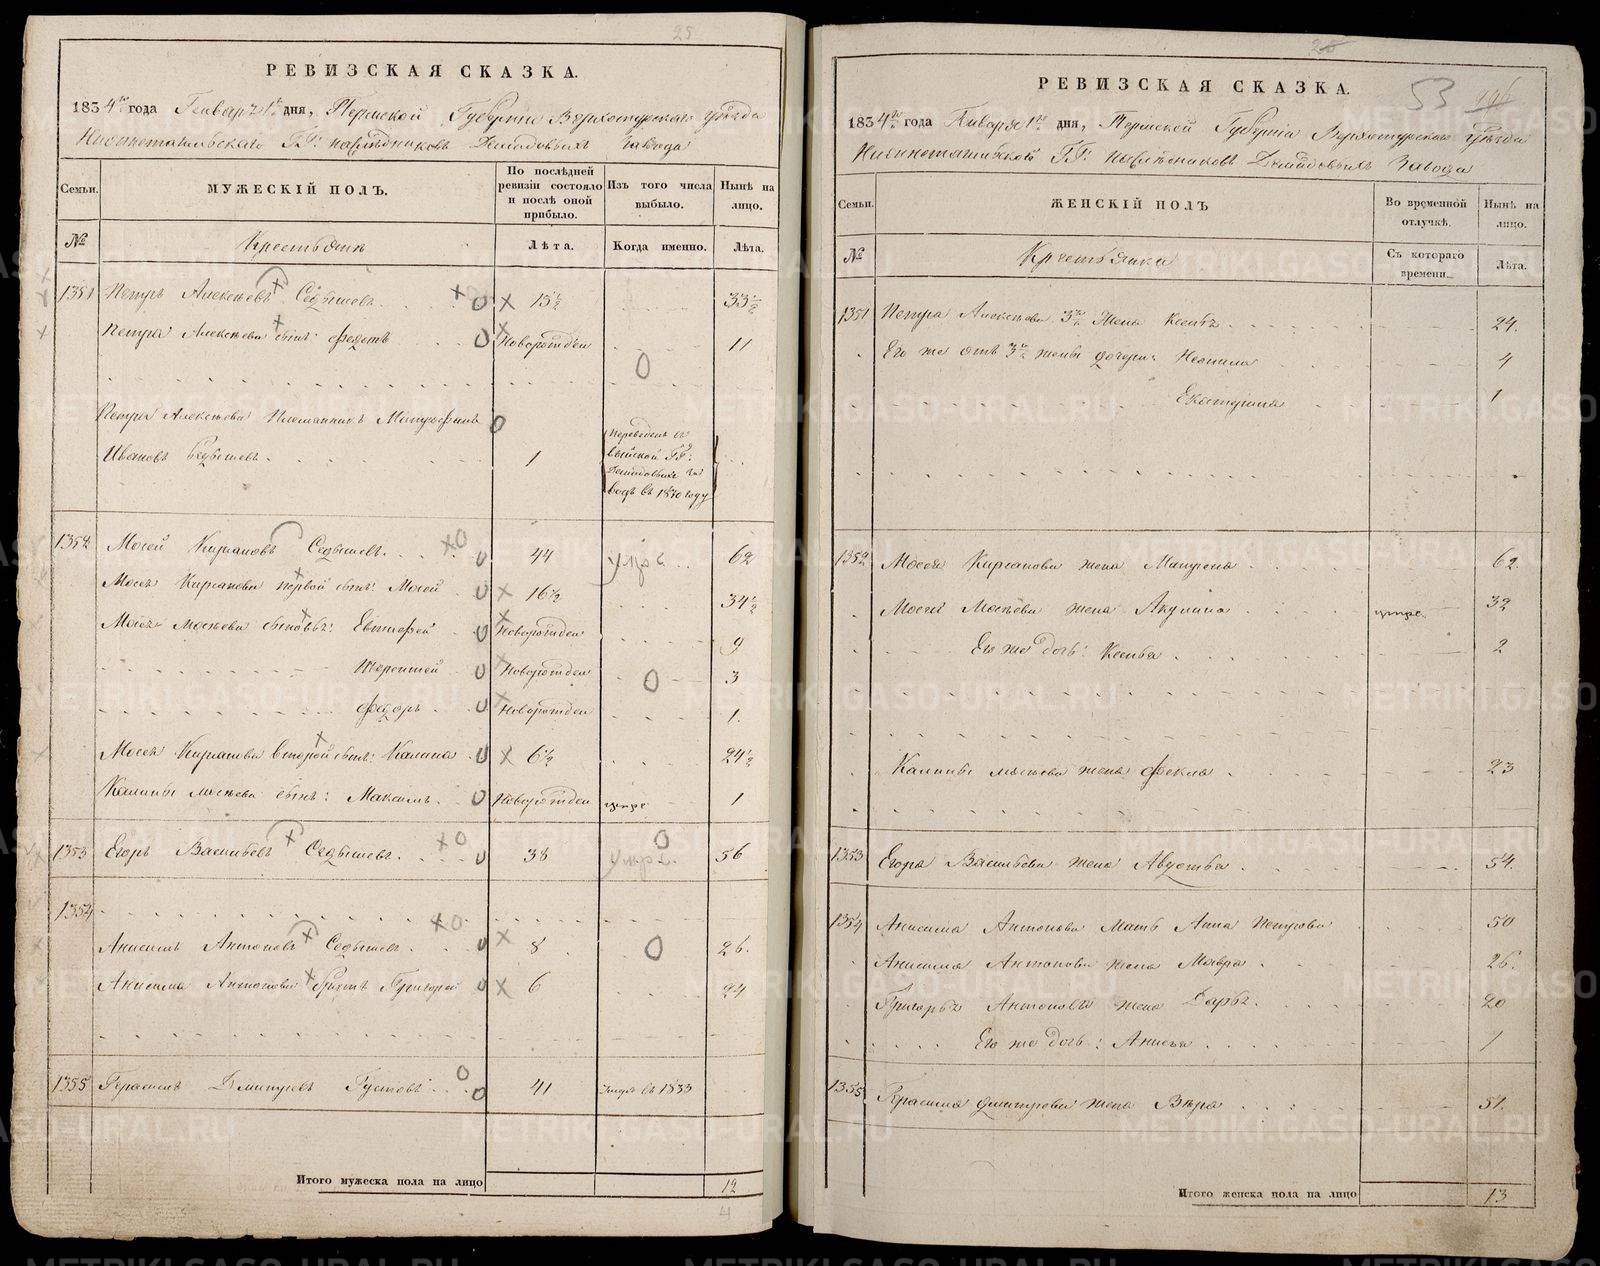 25
РЕВИЗСКАЯ СКАЗКА.
1834го года Генваря 1е дня, Пермской Губерніи Верхотурскаго уѣзда
Нижнетагильскаго ГГ: наслѣдниковъ Демидовыхъ завода
Семьи.
МУЖЕСКІЙ ПОЛЪ.
По послѣдней ревизіи состояло и послѣ оной прибыло.
Изъ того числа выбыло.
Нынѣ на лицо.
№
Крестьянъ
Лѣта.
Когда именно.
Лѣта.
1351 Петръ Алексѣевъ Седышевъ 15½ 33½
Петра Алексѣева сынъ: Федотъ Новорожден 11
Петра Алексѣева племянникъ
Ивановъ Седышевъ. 1
Переведенъ въ
ГГ:
Демидовыхъ за
водъ въ 18 году
1352 Мосей Кирсановъ Седышевъ. 44 умре 62
Мосея Кирсанова первой сынъ: Мосей 16½ 34½
Мосея Мосѣева сыновья: Евтифей Новорожден 9
Терентей Новорожден 3
Федоръ Новорожден 1.
Мосея Кирсанова второй сынъ: Калина 6½ 24½
Калины Мосѣева сынъ: Максимъ Новорожден умре 1
1353 Егоръ Васильевъ Седышевъ. 38 умре. 56
1354
Анисимъ Антоновъ Седышевъ. 8 26.
Анисима Антонова братъ Григорей 6 24
1355 Герасимъ Дмитріевъ Густовъ 41 Умре въ 1833
Итого мужеска пола на лицо 12
4
53
РЕВИЗСКАЯ СКАЗКА.
1834го года Генваря 1го дня, Пермской Губерніи Верхотурскаго Уѣзда
Нижнетагильской ГГ: наслѣдниковъ Демидовыхъ Завода
Семьи.
ЖЕНСКІЙ ПОЛЪ
Во временной отлучкѣ.
Нынѣ на лицо.
№
Крестьянки
Съ котораго времени.
Лѣта.
1351 Петра Алексѣева 3я Жена Ксенья 24.
Его же отъ 3й жены дочери: Неонила 4
Екатерина 1
1352 Мосея Кирсанова жена Матрена 62.
Мосея Мосѣева жена Акулина умре. 32
Его же дочь: Ксенья 2
Калины Мосѣева жена Фекла. 23
1353 Егора Васильева жена Авдотья 54.
1354 Анисима Антонова Мать Анна Петрова 50
Анисима Антонова жена Мавра 26.
Григорья Антонова жена Дарья. 20
Его же дочь: Анисья 1
1355 Герасима Дмитріева жена Вѣра 51.
Итого женска пола на лицо 13
METRIKI.GASO-URAL.RU